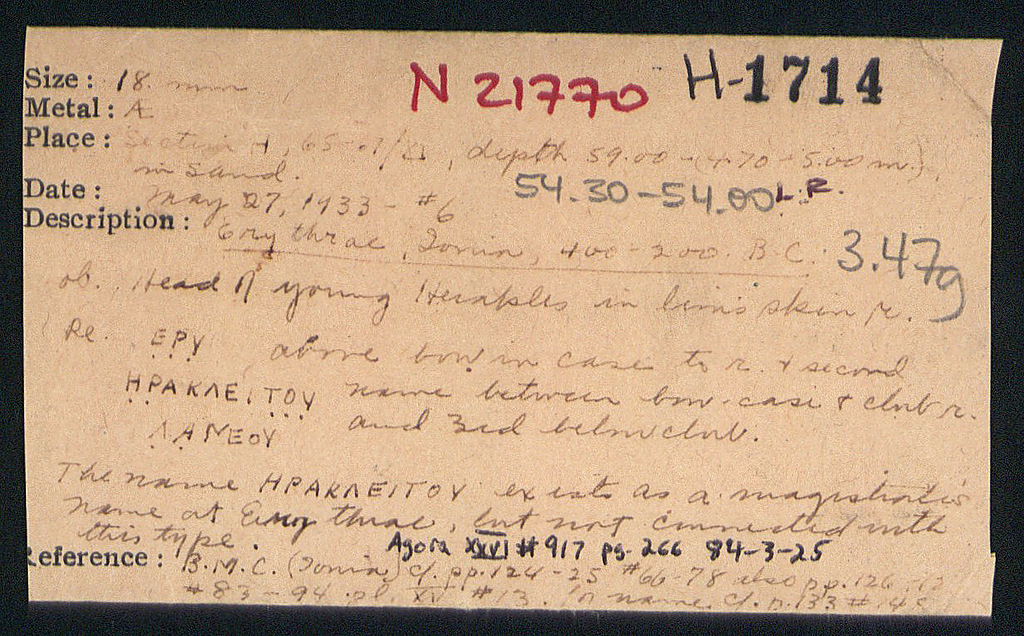 N 21770 H-1714
Size : 18. mm
Metal : Æ
Place : Section H, 65 /, depth 59.00 - (4.70 - 5.00 m.),
in sand.
54.30-54.00 L.R.
Date : May 27, 1933 - #6
Description : Erythrae, Ionia, 400-200. B.C. 3.47g
ob. Head of young Herakles in lion's skin r.
Re. ΕΡΥ above bow in case to r. & second
ΗΡΑΚΛΕΙΤΟΥ name between bow-case & club r.
ΛΑΜΕΟΥ and 3rd below club.
The name ΗΡΑΚΛΕΙΤΟΥ exists as a magistrate's
name at Erythrae, but not connected with
this type.
Agora XXVI #917 pg. 266 84-3-25
Reference : B.M.C. (Ionia) cf. pp. 124-25 #66-78 also pp. 126
#83-94 pl. XV #13. name cf. p. 133